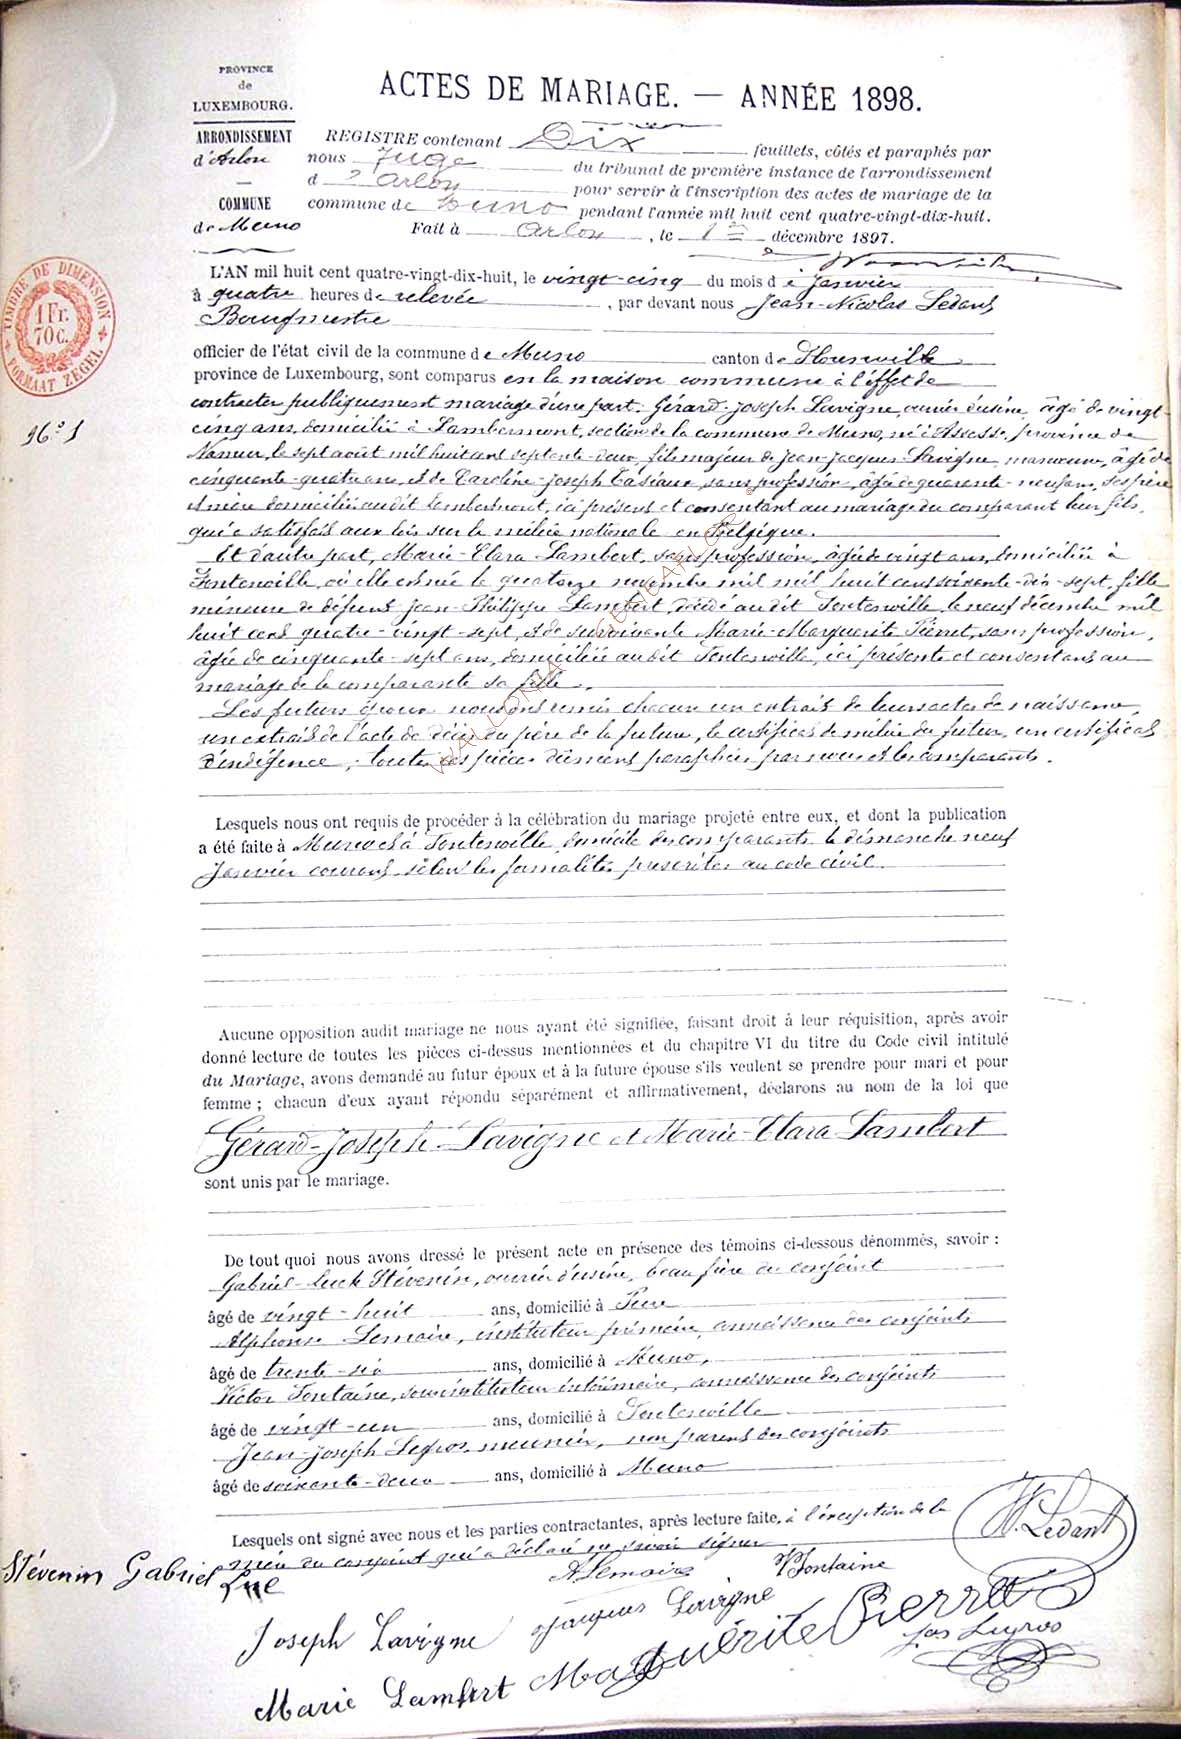 PROVINCE
de
LUXEMBOURG.
ARRONDISSEMENT
d'Arlon
COMMUNE
de Muno
ACTES DE MARIAGE. — ANNÉE 1898.
REGISTRE contenant Dix feuillets, côtés et paraphés par
nous Juge du tribunal de première instance de l'arrondissement
d'Arlon pour servir à l'inscription des actes de mariage de la
commune de Muno pendant l'année mil huit cent quatre-vingt-dix-huit.
Fait à Arlon, le 1er décembre 1897.
TIMBRE DE DIMENSION
1 Fr.
70 c.
FORMAAT ZEGEL
N° 1
L'AN mil huit cent quatre-vingt-dix-huit, le vingt-cinq du mois de Janvier
à quatre heures de relevée, par devant nous Jean-Nicolas Ledant
Bourgmestre
officier de l'état civil de la commune de Muno canton de Florenville
province de Luxembourg, sont comparus en la maison commune à l'effet de
contracter publiquement mariage d'une part. Gérard-Joseph Lavigne, ouvrier d'usine, âgé de vingt-
cinq ans, domicilié à Lambermont, section de la commune de Muno, né à Assesse, province de
Namur, le sept août mil huit cent septante-deux, fils majeur de Jean-Jacques Lavigne, manoeuvre, âgé de
cinquante-quatre ans, et de Caroline-Joseph Tasiaux, sans profession, âgée de quarante-neuf ans, ses père
et mère domiciliés audit Lambermont, ici présents et consentant au mariage du comparant leur fils,
qui a satisfait aux lois sur la milice nationale en Belgique.
Et d'autre part, Marie-Clara Lambert, sans profession, âgée de vingt ans, domiciliée à
Fontenoille, où elle est née le quatorze novembre mil mil huit cent soixante-dix-sept, fille
mineure de défunt Jean-Philippe Lambert, décédé audit Fontenoille, le neuf décembre mil
huit cent quatre-vingt-sept, et de survivante Marie-Marguerite Pierret, sans profession,
âgée de cinquante-sept ans, domiciliée audit Fontenoille, ici présente et consentant au
mariage de la comparante sa fille.
Les futurs époux nous ont remis chacun un extrait de leurs actes de naissance,
un extrait de l'acte de décès du père de la future, le certificat de milice du futur, un certificat
d'indigence, toutes ces pièces dûment paraphées par nous et les comparants.
Lesquels nous ont requis de procéder à la célébration du mariage projeté entre eux, et dont la publication
a été faite à Muno et à Fontenoille, domicile des comparants le dimanche neuf
Janvier courant selon les formalités prescrites au code civil.
Aucune opposition audit mariage ne nous ayant été signifiée, faisant droit à leur réquisition, après avoir
donné lecture de toutes les pièces ci-dessus mentionnées et du chapitre VI du titre du Code civil intitulé
du Mariage, avons demandé au futur époux et à la future épouse s'ils veulent se prendre pour mari et pour
femme ; chacun d'eux ayant répondu séparément et affirmativement, déclarons au nom de la loi que
Gérard-Joseph Lavigne et Marie-Clara Lambert
sont unis par le mariage.
De tout quoi nous avons dressé le présent acte en présence des témoins ci-dessous dénommés, savoir :
Gabriel-Luck Stévenin, ouvrier d'usine, beau frère du conjoint
âgé de vingt-huit ans, domicilié à
Alphonse Lemaire, instituteur primaire, connaissance des conjoints
âgé de trente-six ans, domicilié à Muno,
Victor Fontaine, sous instituteur intérimaire, connaissance des conjoints
âgé de vingt-un ans, domicilié à Fontenoille
Jean-Joseph Legros, meunier, non parent des conjoints
âgé de soixante-deux ans, domicilié à Muno
Lesquels ont signé avec nous et les parties contractantes, après lecture faite, à l'exception de la
mère du conjoint qui a déclaré ne savoir signer
N. Ledant
Stévenin Gabriel Luc
A Lemaire
V Fontaine
Joseph Lavigne
Jacques Lavigne
Marguérite Pierret
Jos Legros
Marie Lambert
WALLONIA GENEALOGIE